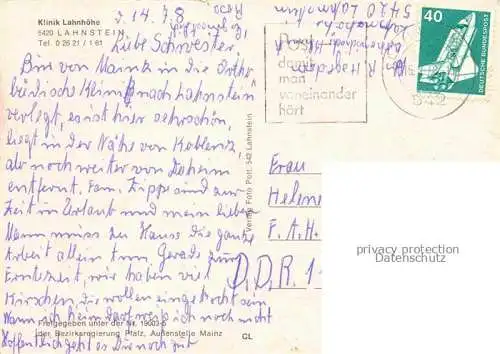 Klinik Lahnhöhe
5420 LAHNSTEIN
Tel. 0 26 21 / 1 61
d. 14. 7. 8
Liebe Schwester
Bin von Mainz in die Orthopädische Klinik nach Lahnstein
verlegt, es ist hier sehr schön,
liegt in der Nähe von Koblenz,
also noch weiter von Daheim
entfernt. Fam. Zippe sind zur
Zeit in Urlaub und mein lieber
Mann muss zu Hause die ganze
Arbeit allein tun. Gerade zur
Erntezeit, wir haben viel
Kirschen die wollen eingekocht sein
Wann ich heim darf weiss ich noch nicht
Hoffentlich geht es Dir noch gut
Freigegeben unter der Nr. 19003-5
der Bezirksregierung Pfalz, Außenstelle Mainz
GL
Verlag Foto Pott, 542 Lahnstein
R. Hagedorn
5420 Lahnstein
Post
damit
man
voneinander
hört
40
DEUTSCHE BUNDESPOST
Frau
Helene
F.A.H.
D.D.R. 1
privacy protection
Datenschutz